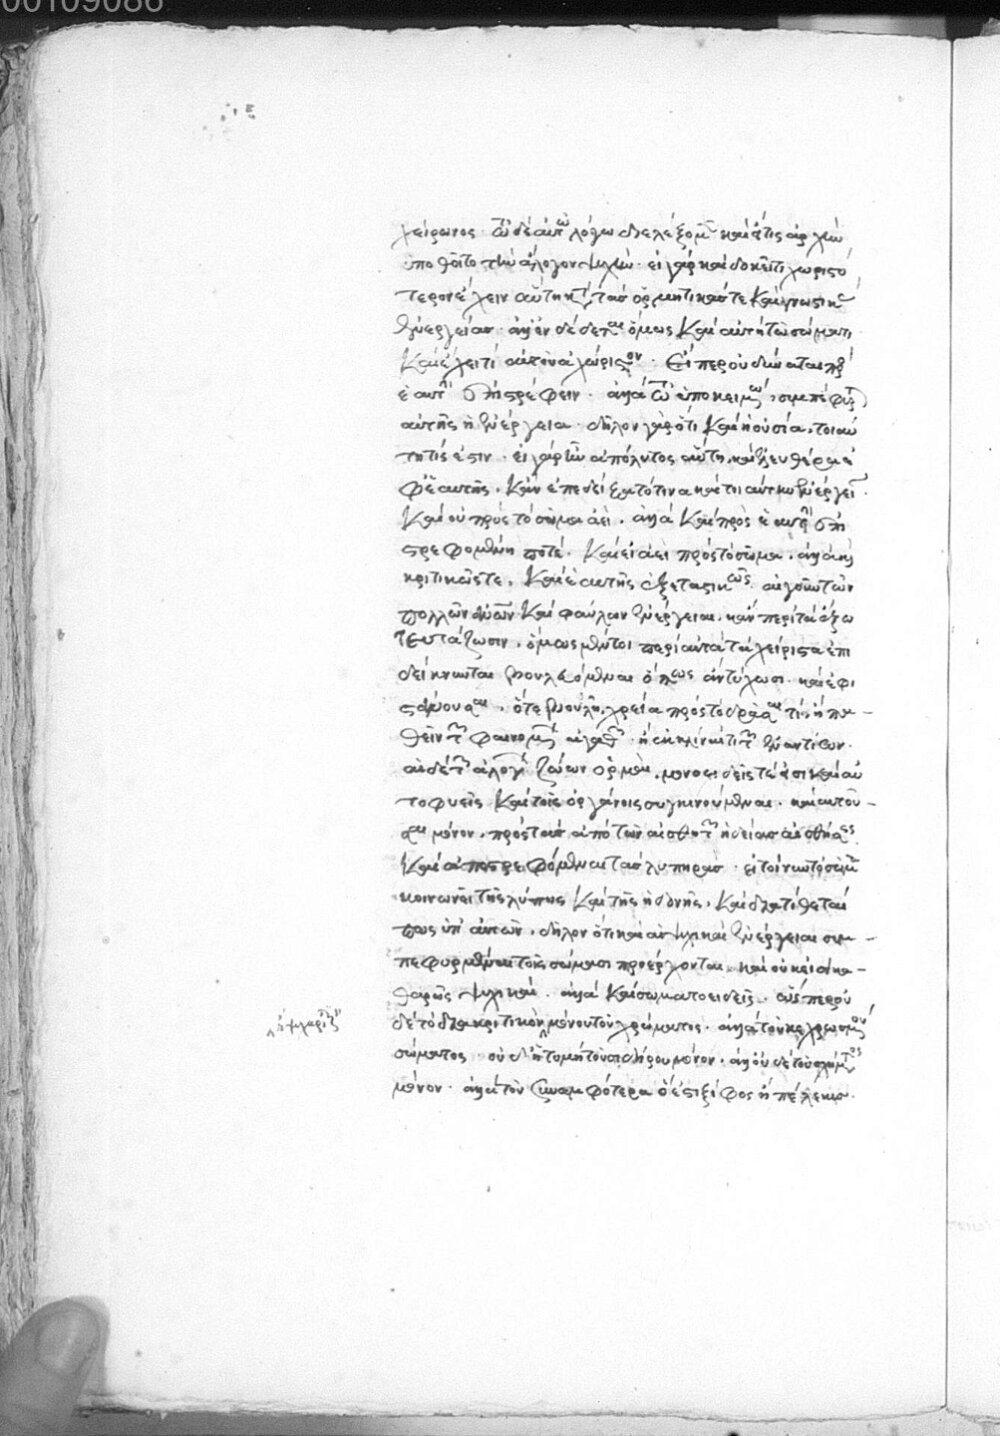 00109086
χείρωνος· τῷ δὲ αὐτῷ λόγω διελέξομεν καὶ εἴ τις ἀρχὴν
ὑποθοῖτο τὴν ἄλογον ψυχήν· εἰ γὰρ καὶ δοκεῖ τι χωριστό
τερον ἔχειν αὕτη κατὰ τὰς ὁρμητικάς τε καὶ γνωστικὰς
ἐνεργείας· ἀλλ' ἐνδέδεται ὅμως καὶ αὐτὴ τῶ σώματι
καὶ ἔχει τι αὐτοῦ ἀχώριστον· εἴπερ οὐ δύναται πρὸς
ἑαυτὴν ἐπιστρέφειν· ἀλλὰ τῷ ὑποκειμένω συμπέφυρται
αὐτῆς ἡ ἐνέργεια· δῆλον γὰρ ὅτι καὶ ἡ οὐσία, τοιαύ
τη τίς ἐστιν· εἰ γὰρ ἦν ἀπόλυτος αὕτη, καὶ ἐλευθέρα ἐ
φ' ἑαυτῆς, κἂν ἐπεδείξατό τινα καὶ τοιαύτην ἐνέργειαν·
καὶ οὐ πρὸς τὸ σῶμα ἀεί, ἀλλὰ καὶ πρὸς ἑαυτὴν ἐπι
στρεφομένην ποτέ· καὶ εἰ ἀεὶ πρὸς τὸ σῶμα, ἀλλὰ καὶ
κριτικῶς τε, καὶ ἑαυτῆς ἐξεταστικῶς· αἱ γοῦν τῶν
πολλῶν ἀνθρώπων καὶ φαύλων ἐνέργειαι, κἂν περὶ τὰ ἔξω
πευτάζωσιν, ὅμως μέντοι περὶ αὐτὰ τὰ χωριστὰ ἐπι
δείκνυνται βουλευόμεναι ὅπως ἂν τύχωσι· καὶ ἐφι
στάνουσαι, ὅτε βουλῆς χρεία πρὸς τὸ δρᾶσαί τι, ἢ πα-
θεῖν τῶν φαινομένων ἀγαθῶν· ἢ ἐκκλῖναί τι τῶν ἐναντίων·
αἱ δὲ τῶν ἀλόγων ζώων ὁρμαὶ, μονοειδεῖς τέ εἰσι καὶ αὐ
τοφυεῖς καὶ τοῖς ὀργάνοις συγκινούμεναι· καὶ αὐτοῦ-
σαι μόνον, πρὸς τὰς ἀπὸ τῶν αἰσθητῶν ἡδείας αἰσθήσεις
καὶ ἀποστρεφόμεναι τὰς λυπηράς· εἰ τοίνυν τὸ σῶμα
κοινωνεῖ τῆς λύπης καὶ τῆς ἡδονῆς, καὶ διατίθεταί
πως ὑπ' αὐτῶν, δῆλον ὅτι καὶ αἱ ψυχικαὶ ἐνέργειαι συμ-
πεφυρμέναι τοῖς σώμασι προέρχονται· καὶ οὐκ εἰσὶ κα-
θαρῶς ψυχικαί· ἀλλὰ καὶ σωματοειδεῖς· ὥσπερ οὐ
δὲ τὸ διακριτικὸν μόνου τοῦ χρώματος· ἀλλὰ τοῦ κεχρωσμένου
σώματος· οὐδ' ἡ τομὴ τοῦ σιδήρου μόνον, ἀλλ' οὐδὲ τοῦ σχήματος
μόνον· ἀλλὰ τοῦ συναμφότερα ὅ ἐστι ξίφος ἢ πέλεκυς·